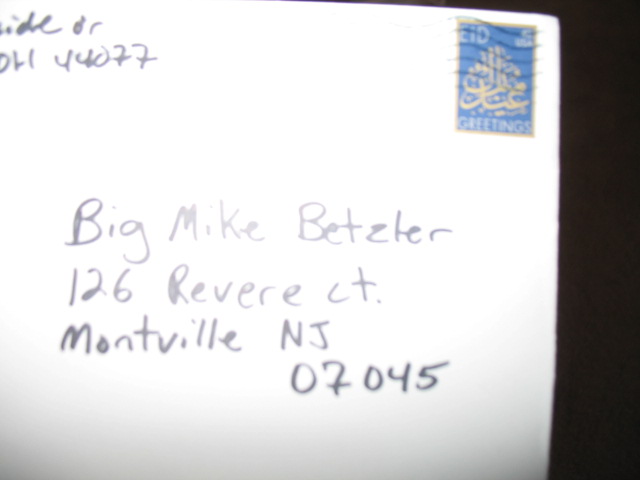 side dr
OH 44077
EID
USA
عيد مبارك
GREETINGS
Big Mike Betzler
126 Revere ct.
Montville NJ
07045